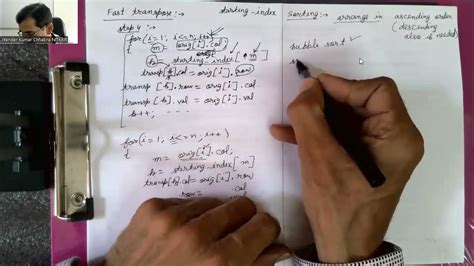 Jitender Kumar Chhabra NITKKR
Fast transpose:
starting-index
step 4
for(i=1; i<=n; i++)
{ m = orig[i].col;
b = starting-index[m]
transp[b].col = orig[i].row
transp[b].row = orig[i].col
transp[b].val = orig[i].val
b++;
for(i=1, i<=n, i++)
{
m = orig[i].col;
b = starting-index[m]
transp[b].col = orig[i].row
.row =
.col
.val
Sorting:
arrange in ascending order
(descending
also if needed)
bubble sort
s